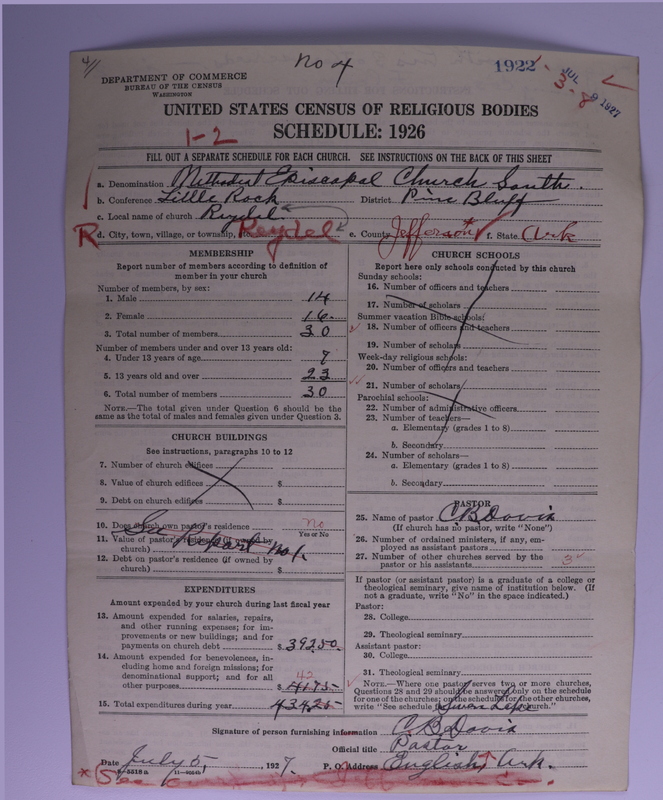 4
No 4
1922 - JUL 9 1927
3-8
DEPARTMENT OF COMMERCE
BUREAU OF THE CENSUS
WASHINGTON
UNITED STATES CENSUS OF RELIGIOUS BODIES
SCHEDULE: 1926
1-2
FILL OUT A SEPARATE SCHEDULE FOR EACH CHURCH. SEE INSTRUCTIONS ON THE BACK OF THIS SHEET
a. Denomination Methodist Episcopal Church South.
b. Conference Little Rock District Pine Bluff
c. Local name of church Reydel
R d. City, town, village, or township, etc. Reydel e. County Jefferson f. State Ark
MEMBERSHIP
Report number of members according to definition of
member in your church
Number of members, by sex:
1. Male 14
2. Female 16
3. Total number of members 30
Number of members under and over 13 years old:
4. Under 13 years of age 7
5. 13 years old and over 23
6. Total number of members 30
NOTE.—The total given under Question 6 should be the
same as the total of males and females given under Question 3.
CHURCH BUILDINGS
See instructions, paragraphs 10 to 12
7. Number of church edifices
8. Value of church edifices $
9. Debt on church edifices $
10. Does church own pastor's residence no
Yes or No
11. Value of pastor's residence (if owned by
church) $
See Report No 1.
12. Debt on pastor's residence (if owned by
church) $
EXPENDITURES
Amount expended by your church during last fiscal year
13. Amount expended for salaries, repairs,
and other running expenses; for im-
provements or new buildings; and for
payments on church debt $ 392.50
14. Amount expended for benevolences, in-
cluding home and foreign missions; for
denominational support; and for all
other purposes $ 41.75
42
15. Total expenditures during year 434.25
CHURCH SCHOOLS
Report here only schools conducted by this church
Sunday schools:
16. Number of officers and teachers
17. Number of scholars
Summer vacation Bible schools:
18. Number of officers and teachers
19. Number of scholars
Week-day religious schools:
20. Number of officers and teachers
21. Number of scholars
Parochial schools:
22. Number of administrative officers
23. Number of teachers—
a. Elementary (grades 1 to 8)
b. Secondary
24. Number of scholars—
a. Elementary (grades 1 to 8)
b. Secondary
PASTOR
25. Name of pastor C B Davis
(If church has no pastor, write "None")
26. Number of ordained ministers, if any, em-
ployed as assistant pastors
27. Number of other churches served by the
pastor or his assistants 3
If pastor (or assistant pastor) is a graduate of a college or
theological seminary, give name of institution below. (If
not a graduate, write "No" in the space indicated.)
Pastor:
28. College
29. Theological seminary
Assistant pastor:
30. College
31. Theological seminary
NOTE.—Where one pastor serves two or more churches,
Questions 28 and 29 should be answered only on the schedule
for one of the churches; on the schedule for the other churches,
write "See schedule for Swan Lake church."
Signature of person furnishing information C. B Davis
Official title Pastor
Date July 5, 1927. P. O. Address English, Ark.
8-5518a 11-
* (See